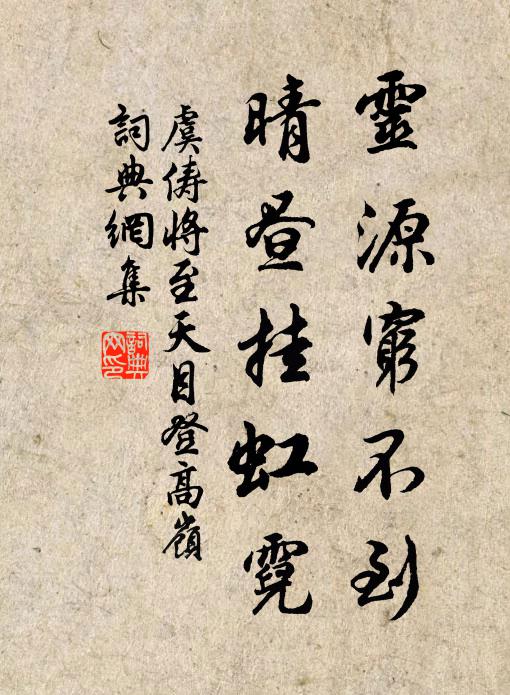 靈源窮不到
晴昼挂虹霓
虞俦將至天目登高嶺
詞典網集
詞典网印